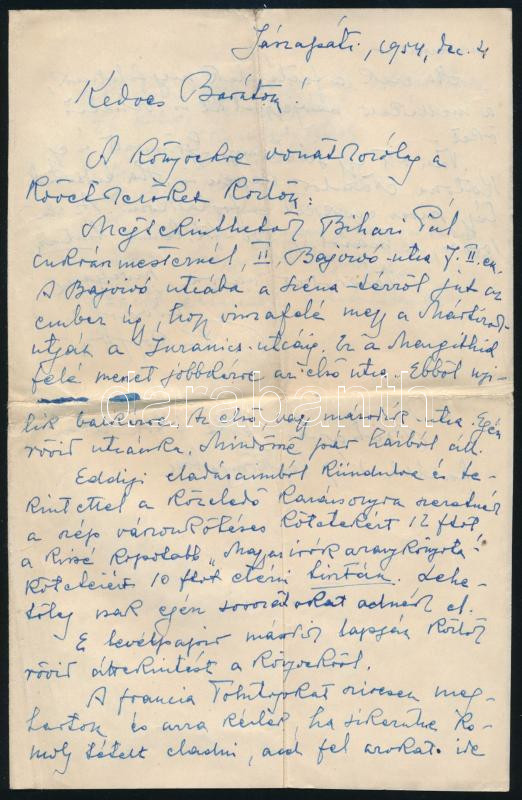 Jászapáti, 1954, dec. 4
Kedves Barátom!
A könyvekre vonatkozólag a
következőket közlöm:
Megtekinthetők Bihari Pál
cukrászmesternél, II, Bajvívó-utca 7. II. em.
A Bajvívó utcába a Széna-térről jut az
ember úgy, hogy visszafelé megy a Mártírok
útján a Jurányi-utcáig. Ez a Margithíd
felé menet jobbkézre az első utca. Ebből nyí-
lik balkézre. Az első vagy második utca. Egész
rövid utcácska. Mindössze pár házból áll.
Eddigi eladásaimból kiindulva és te-
kintettel a közeledő karácsonyra szeretnék
a szép vászonkötéses kötetekért 12 ftot
a kissé kopottabb „Magyar írók aranykönyvtára"
köteteiért 10 ftot elérni tisztán. Lehe-
tőleg csak egész sorozatokat adnék el.
E levélpapír másik lapján közlök
rövid áttekintést a könyvekről.
A francia Tolsztojokat szívesen meg-
tartom és arra kérlek, ha sikerülne ko-
moly tételt eladni, add fel azokat ide
darabanth.com